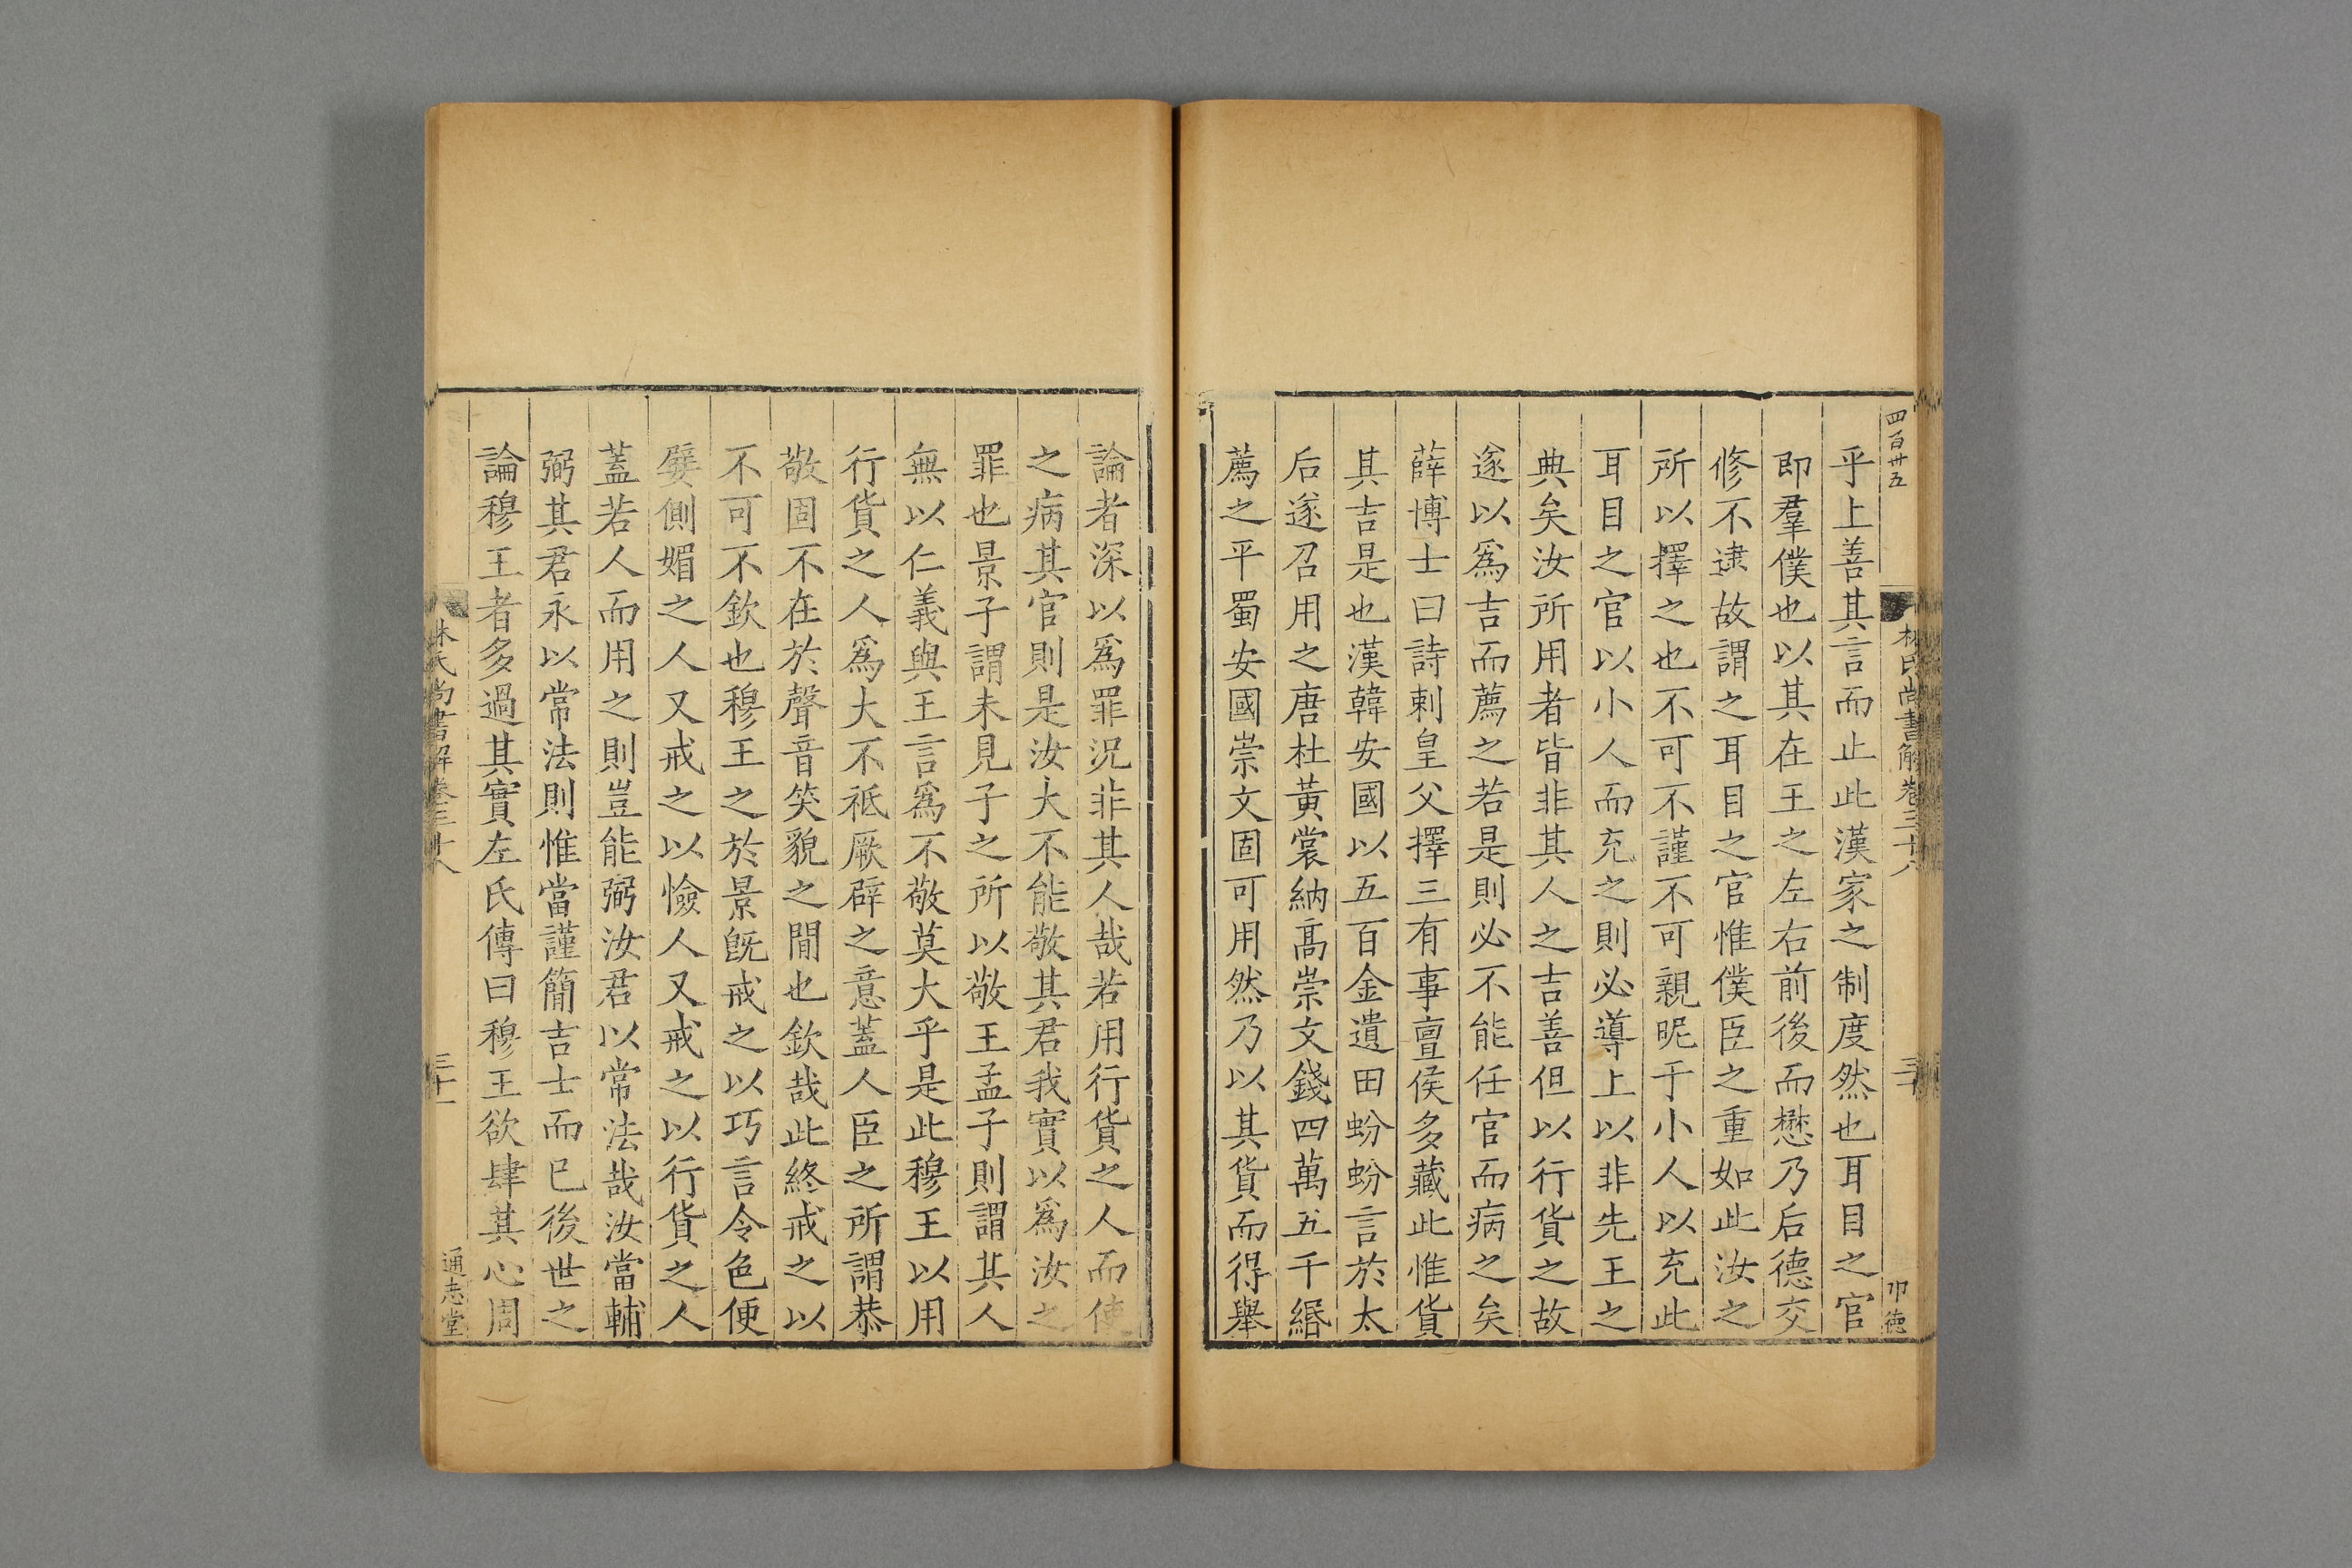 四百卅五
林氏尚書解卷三十八
三十
卬德
乎上善其言而止此漢家之制度然也耳目之官
即羣僕也以其在王之左右前後而懋乃后德交
修不逮故謂之耳目之官惟僕臣之重如此汝之
所以擇之也不可不謹不可親昵于小人以充此
耳目之官以小人而充之則必導上以非先王之
典矣汝所用者皆非其人之吉善但以行貨之故
遂以爲吉而薦之若是則必不能任官而病之矣
薛博士曰詩刺皇父擇三有事亶侯多藏此惟貨
其吉是也漢韓安國以五百金遺田蚡蚡言於太
后遂召用之唐杜黃裳納高崇文錢四萬五千緡
薦之平蜀安國崇文固可用然乃以其貨而得舉
論者深以爲罪況非其人哉若用行貨之人而使
之病其官則是汝大不能敬其君我實以爲汝之
罪也景子謂未見子之所以敬王孟子則謂其人
無以仁義與王言爲不敬莫大乎是此穆王以用
行貨之人爲大不祗厥辟之意蓋人臣之所謂恭
敬固不在於聲音笑貌之閒也欽哉此終戒之以
不可不欽也穆王之於景旣戒之以巧言令色便
嬖側媚之人又戒之以憸人又戒之以行貨之人
蓋若人而用之則豈能弼汝君以常法哉汝當輔
弼其君永以常法則惟當謹簡吉士而已後世之
論穆王者多過其實左氏傳曰穆王欲肆其心周
林氏尚書解卷三十八
三十一
通志堂